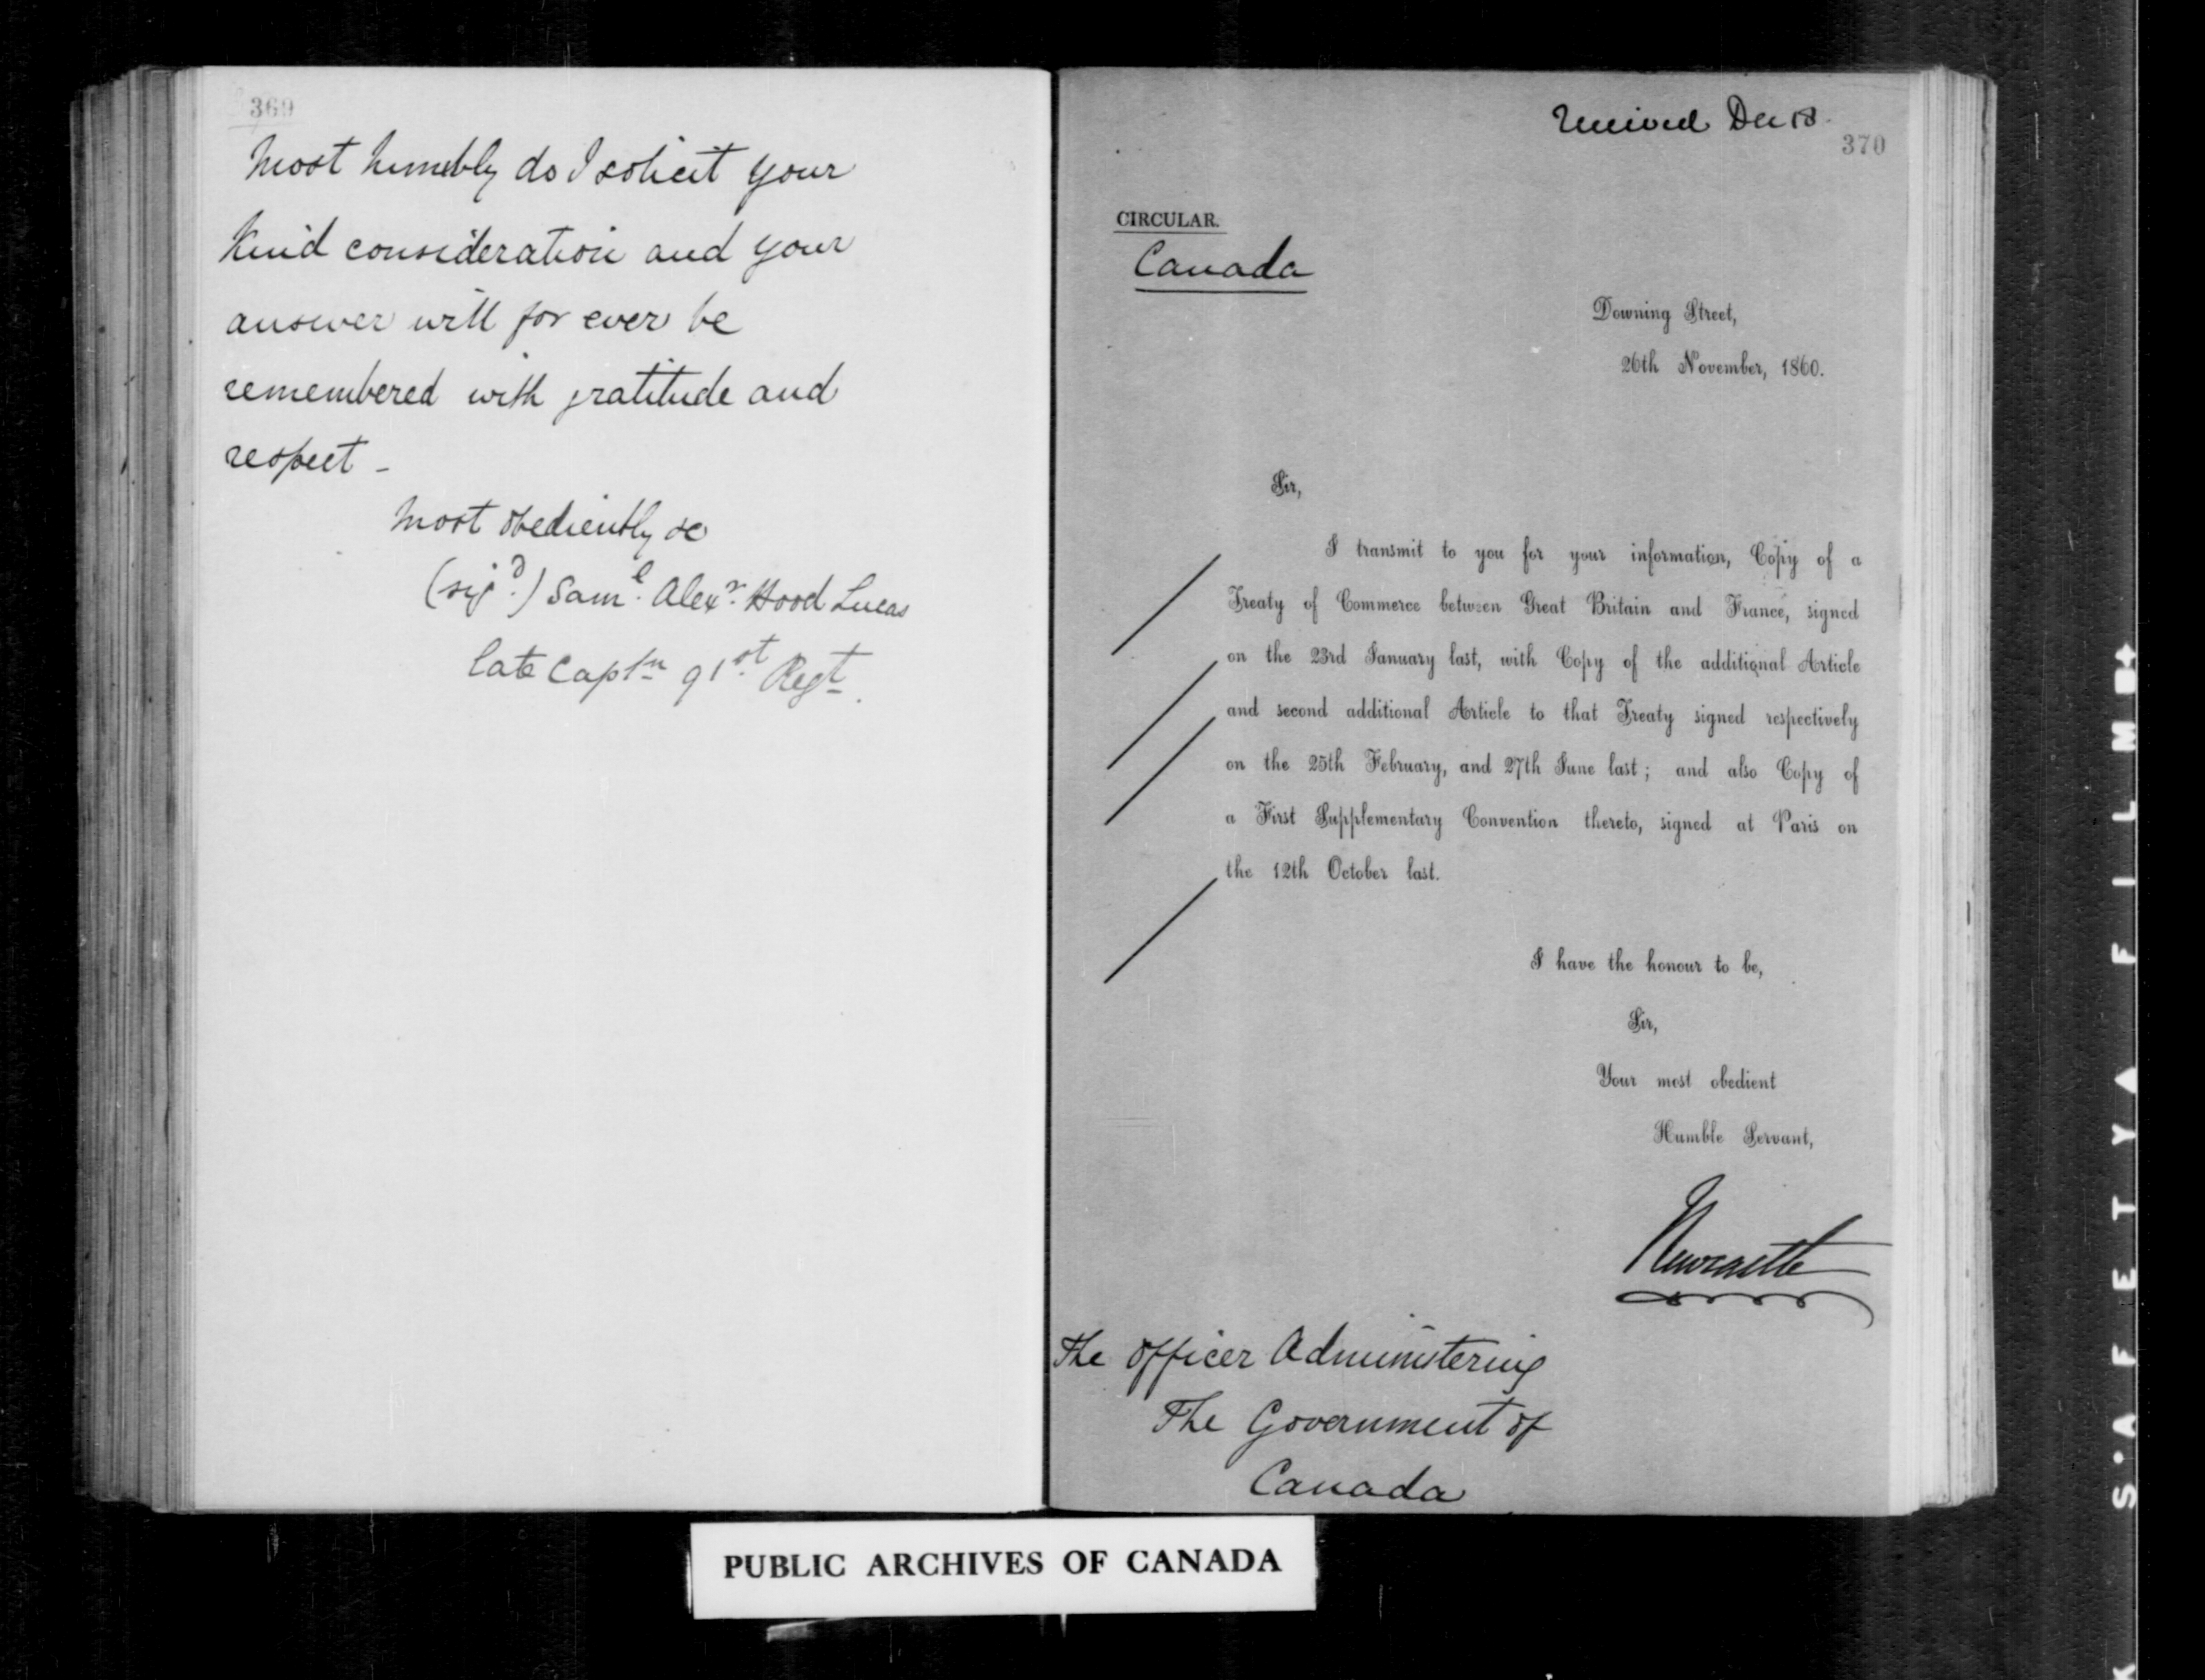 369
Most humbly do I solicit your
kind consideration and your
answer will for ever be
remembered with gratitude and
respect -
Most obediently &c
(sigd.) Saml. Alexr. Hood Lucas
late Captn 91st. Regt.
Received Dec 18.
370
CIRCULAR.
Canada
Downing Street,
26th November, 1860.
Sir,
I transmit to you for your information, Copy of a
Treaty of Commerce between Great Britain and France, signed
on the 23rd January last, with Copy of the additional Article
and second additional Article to that Treaty signed respectively
on the 25th February, and 27th June last; and also Copy of
a First Supplementary Convention thereto, signed at Paris on
the 12th October last.
I have the honour to be,
Sir,
Your most obedient
Humble Servant,
Newcastle
The Officer Administering
The Government of
Canada
PUBLIC ARCHIVES OF CANADA
S'AFETY▲FILM